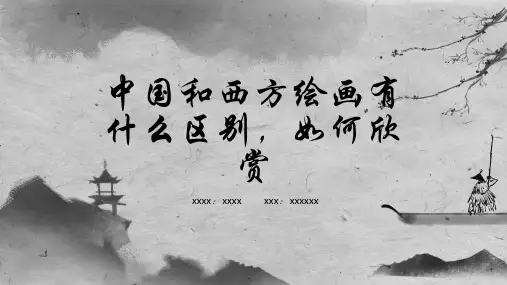 中国和西方绘画有
什么区别，如何欣
赏
xxxx：xxxx xxx：xxxxxx